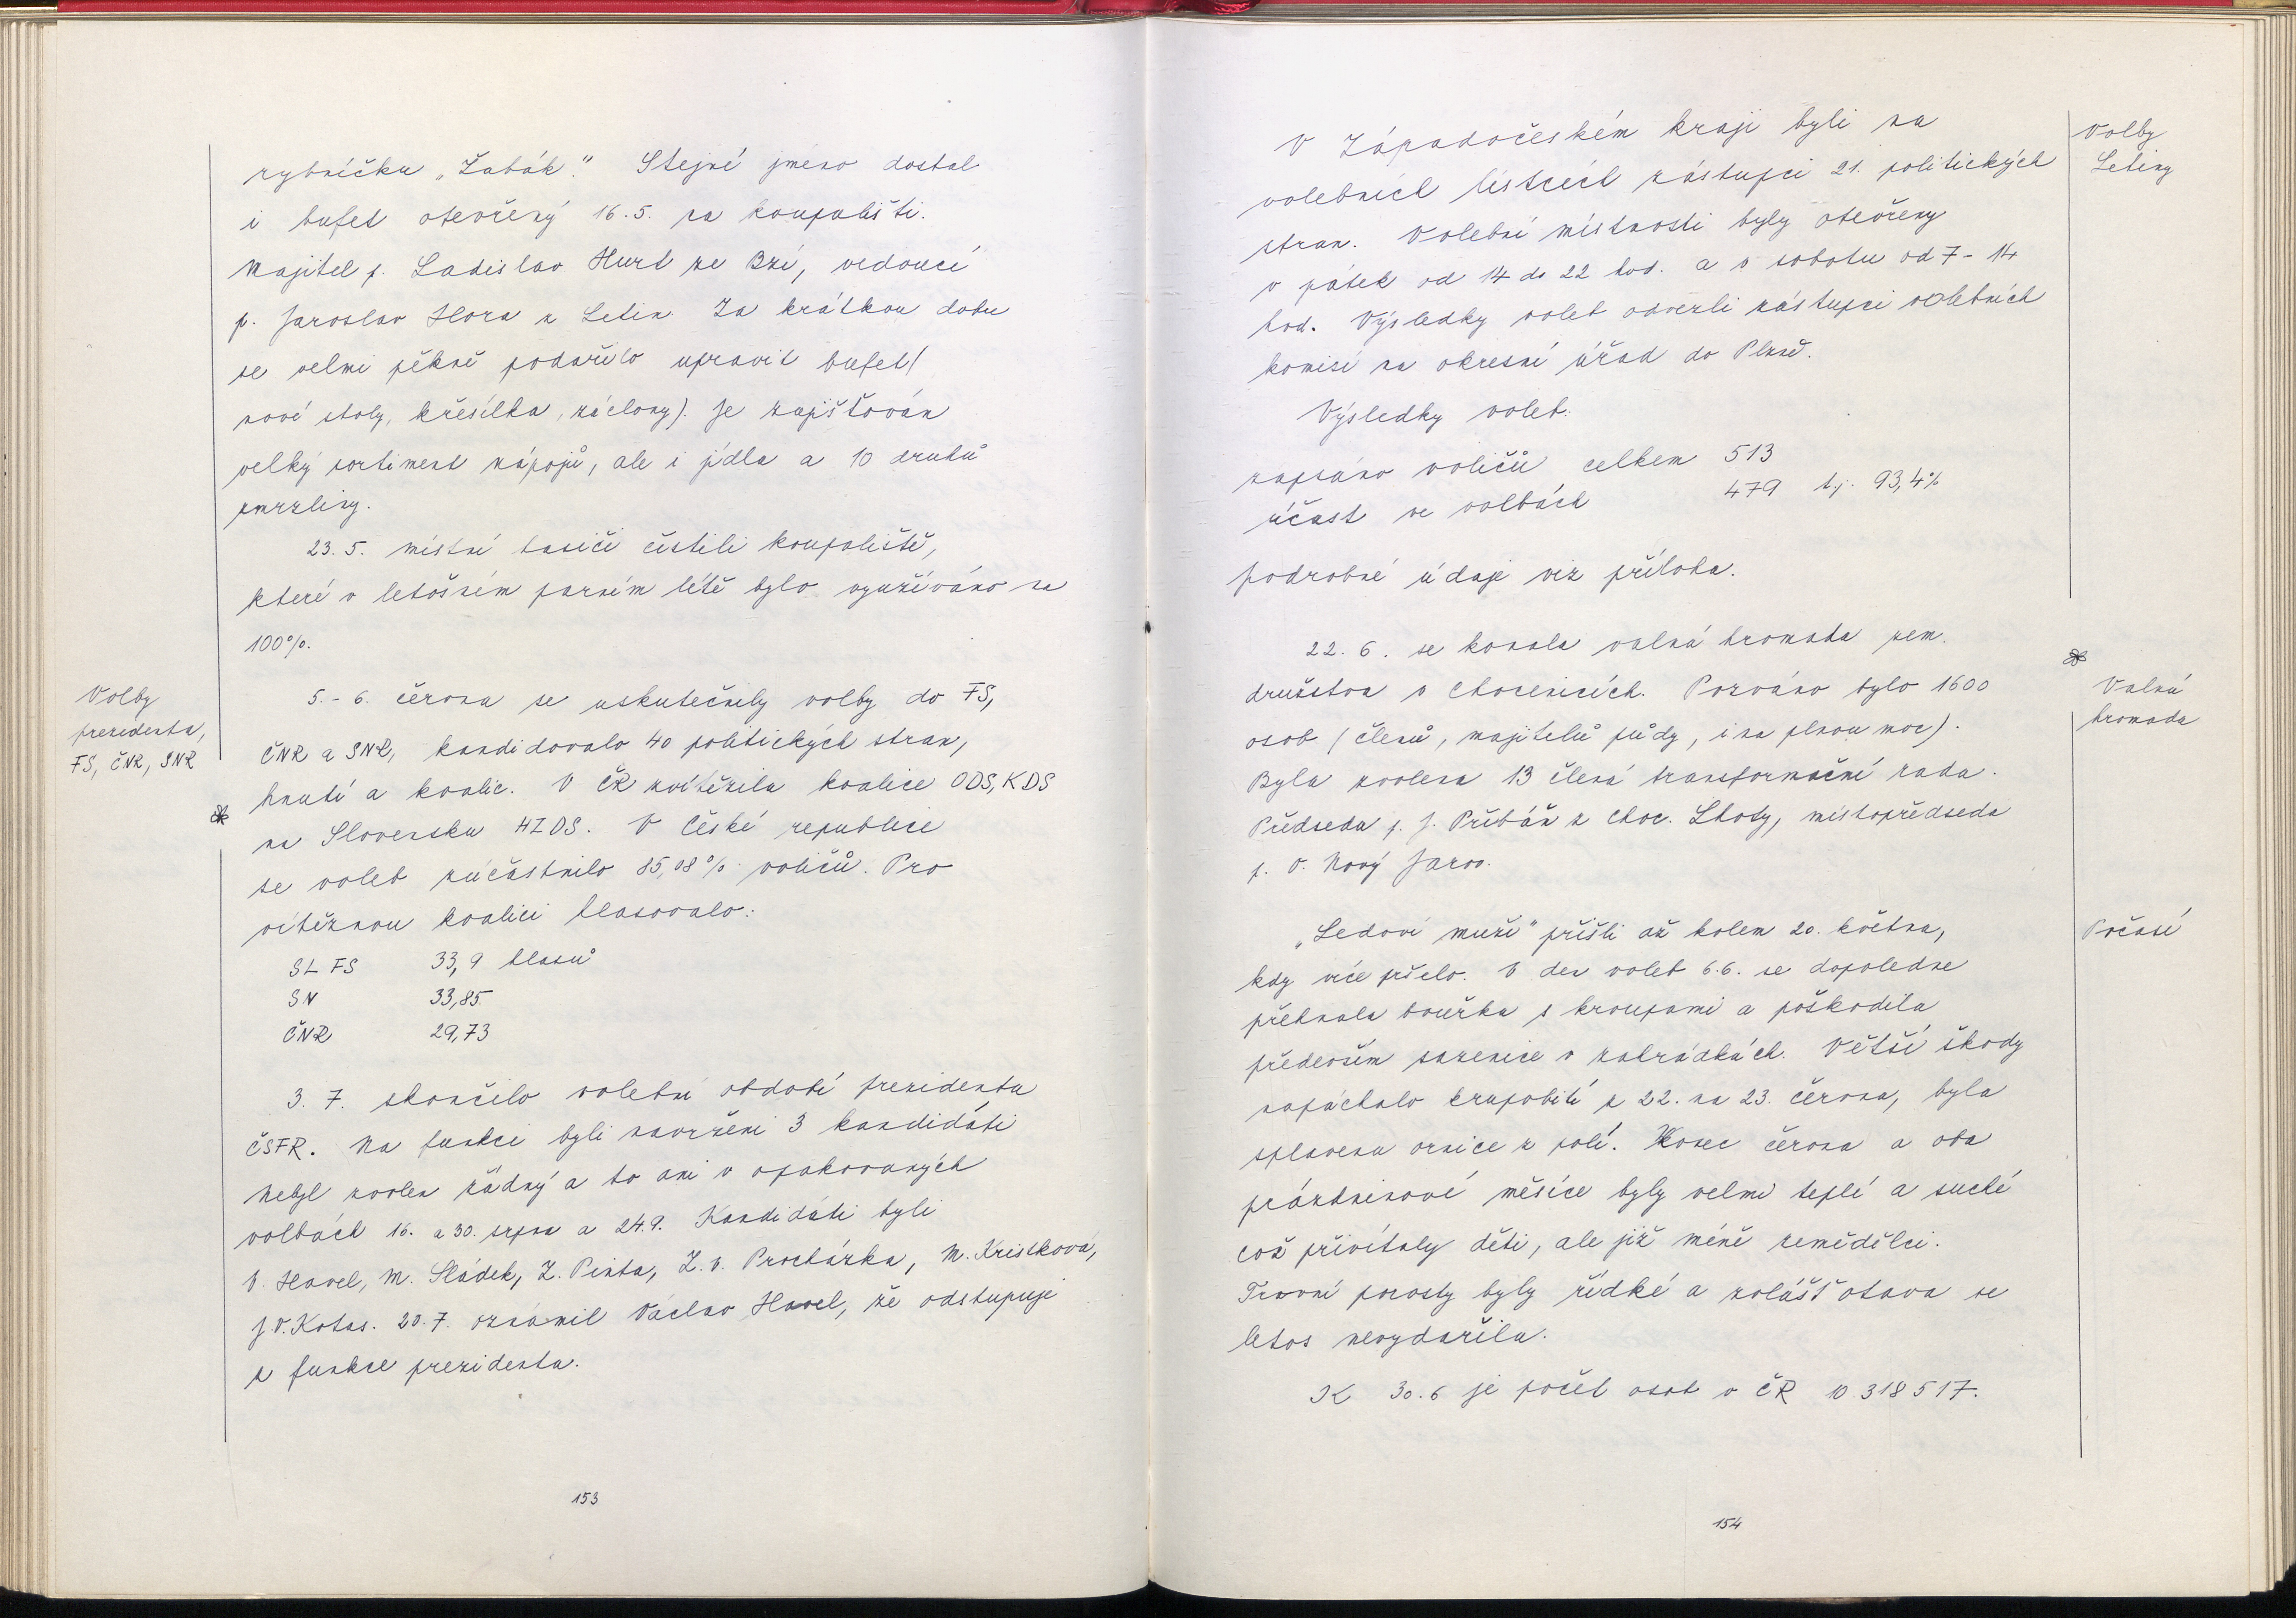 rybníčku „Žabák". Stejné jméno dostal
i bufet otevřený 16.5. na koupališti.
Majitel p. Ladislav Hurt ze Bzí, vedoucí
p. Jaroslav Hora z Letin. Za krátkou dobu
se velmi pěkně podařilo upravit bufet (
nové stoly, křesílka, záclony). Je zajišťován
velký sortiment nápojů, ale i jídla a 10 druhů
zmrzliny.
23.5. místní hasiči čistili koupaliště,
které v letošním parném létě bylo využíváno na
100%.
Volby
prezidenta,
FS, ČNR, SNR
5.-6. června se uskutečnily volby do FS,
ČNR a SNR, kandidovalo 40 politických stran,
hnutí a koalic. V ČR zvítězila koalice ODS, KDS
na Slovensku HZDS. V České republice
se voleb zúčastnilo 85,08% voličů. Pro
vítěznou koalici hlasovalo:
SL FS 33,9 hlasů
SN 33,85
ČNR 29,73
3. 7. skončilo volební období prezidenta
ČSFR. Na funkci byli navrženi 3 kandidáti
Nebyl zvolen žádný a to ani v opakovaných
volbách 16. a 30. srpna a 24.9. Kandidáti byli
V. Havel, M. Sládek, Z. Pinta, Z. V. Procházka, M. Kristková,
J.V. Kotas. 20.7. oznámil Václav Havel, že odstupuje
z funkce prezidenta.
153
V Západočeském kraji byli na
volebních lístcích zástupci 21. politických
stran. Volební místnosti byly otevřeny
v pátek od 14 do 22 hod. a v sobotu od 7-14
hod. Výsledky voleb odvezli zástupci volebních
komisí na okresní úřad do Plzně.
Výsledky voleb:
zapsáno voličů celkem 513
účast ve volbách 479 t.j. 93,4%
podrobné údaje viz příloha.
Volby
Letiny
22. 6. se konala valná hromada zem.
družstva v Chocenicích. Pozváno bylo 1600
osob (členů, majitelů půdy, i na plnou moc).
Byla zvolena 13 člená transformační rada.
Předseda p. J. Přibáň z Choc. Lhoty, místopředseda
p. V. Nový Jarov.
Valná
hromada
„Ledoví muži" přišli až kolem 20. května,
kdy více pršelo. V den voleb 6.6. se dopoledne
přehnala bouřka s kroupami a poškodila
především sazenice v zahrádkách. Větší škody
napáchalo krupobití z 22. na 23. června, byla
splavena ornice z polí. Konec června a oba
prázdninové měsíce byly velmi teplé a suché
což přivítaly děti, ale již méně zemědělci.
Travní porosty byly řídké a zvlášť otava se
letos nevydařila.
K 30.6 je počet osob v ČR 10 318 517.
Počasí
154